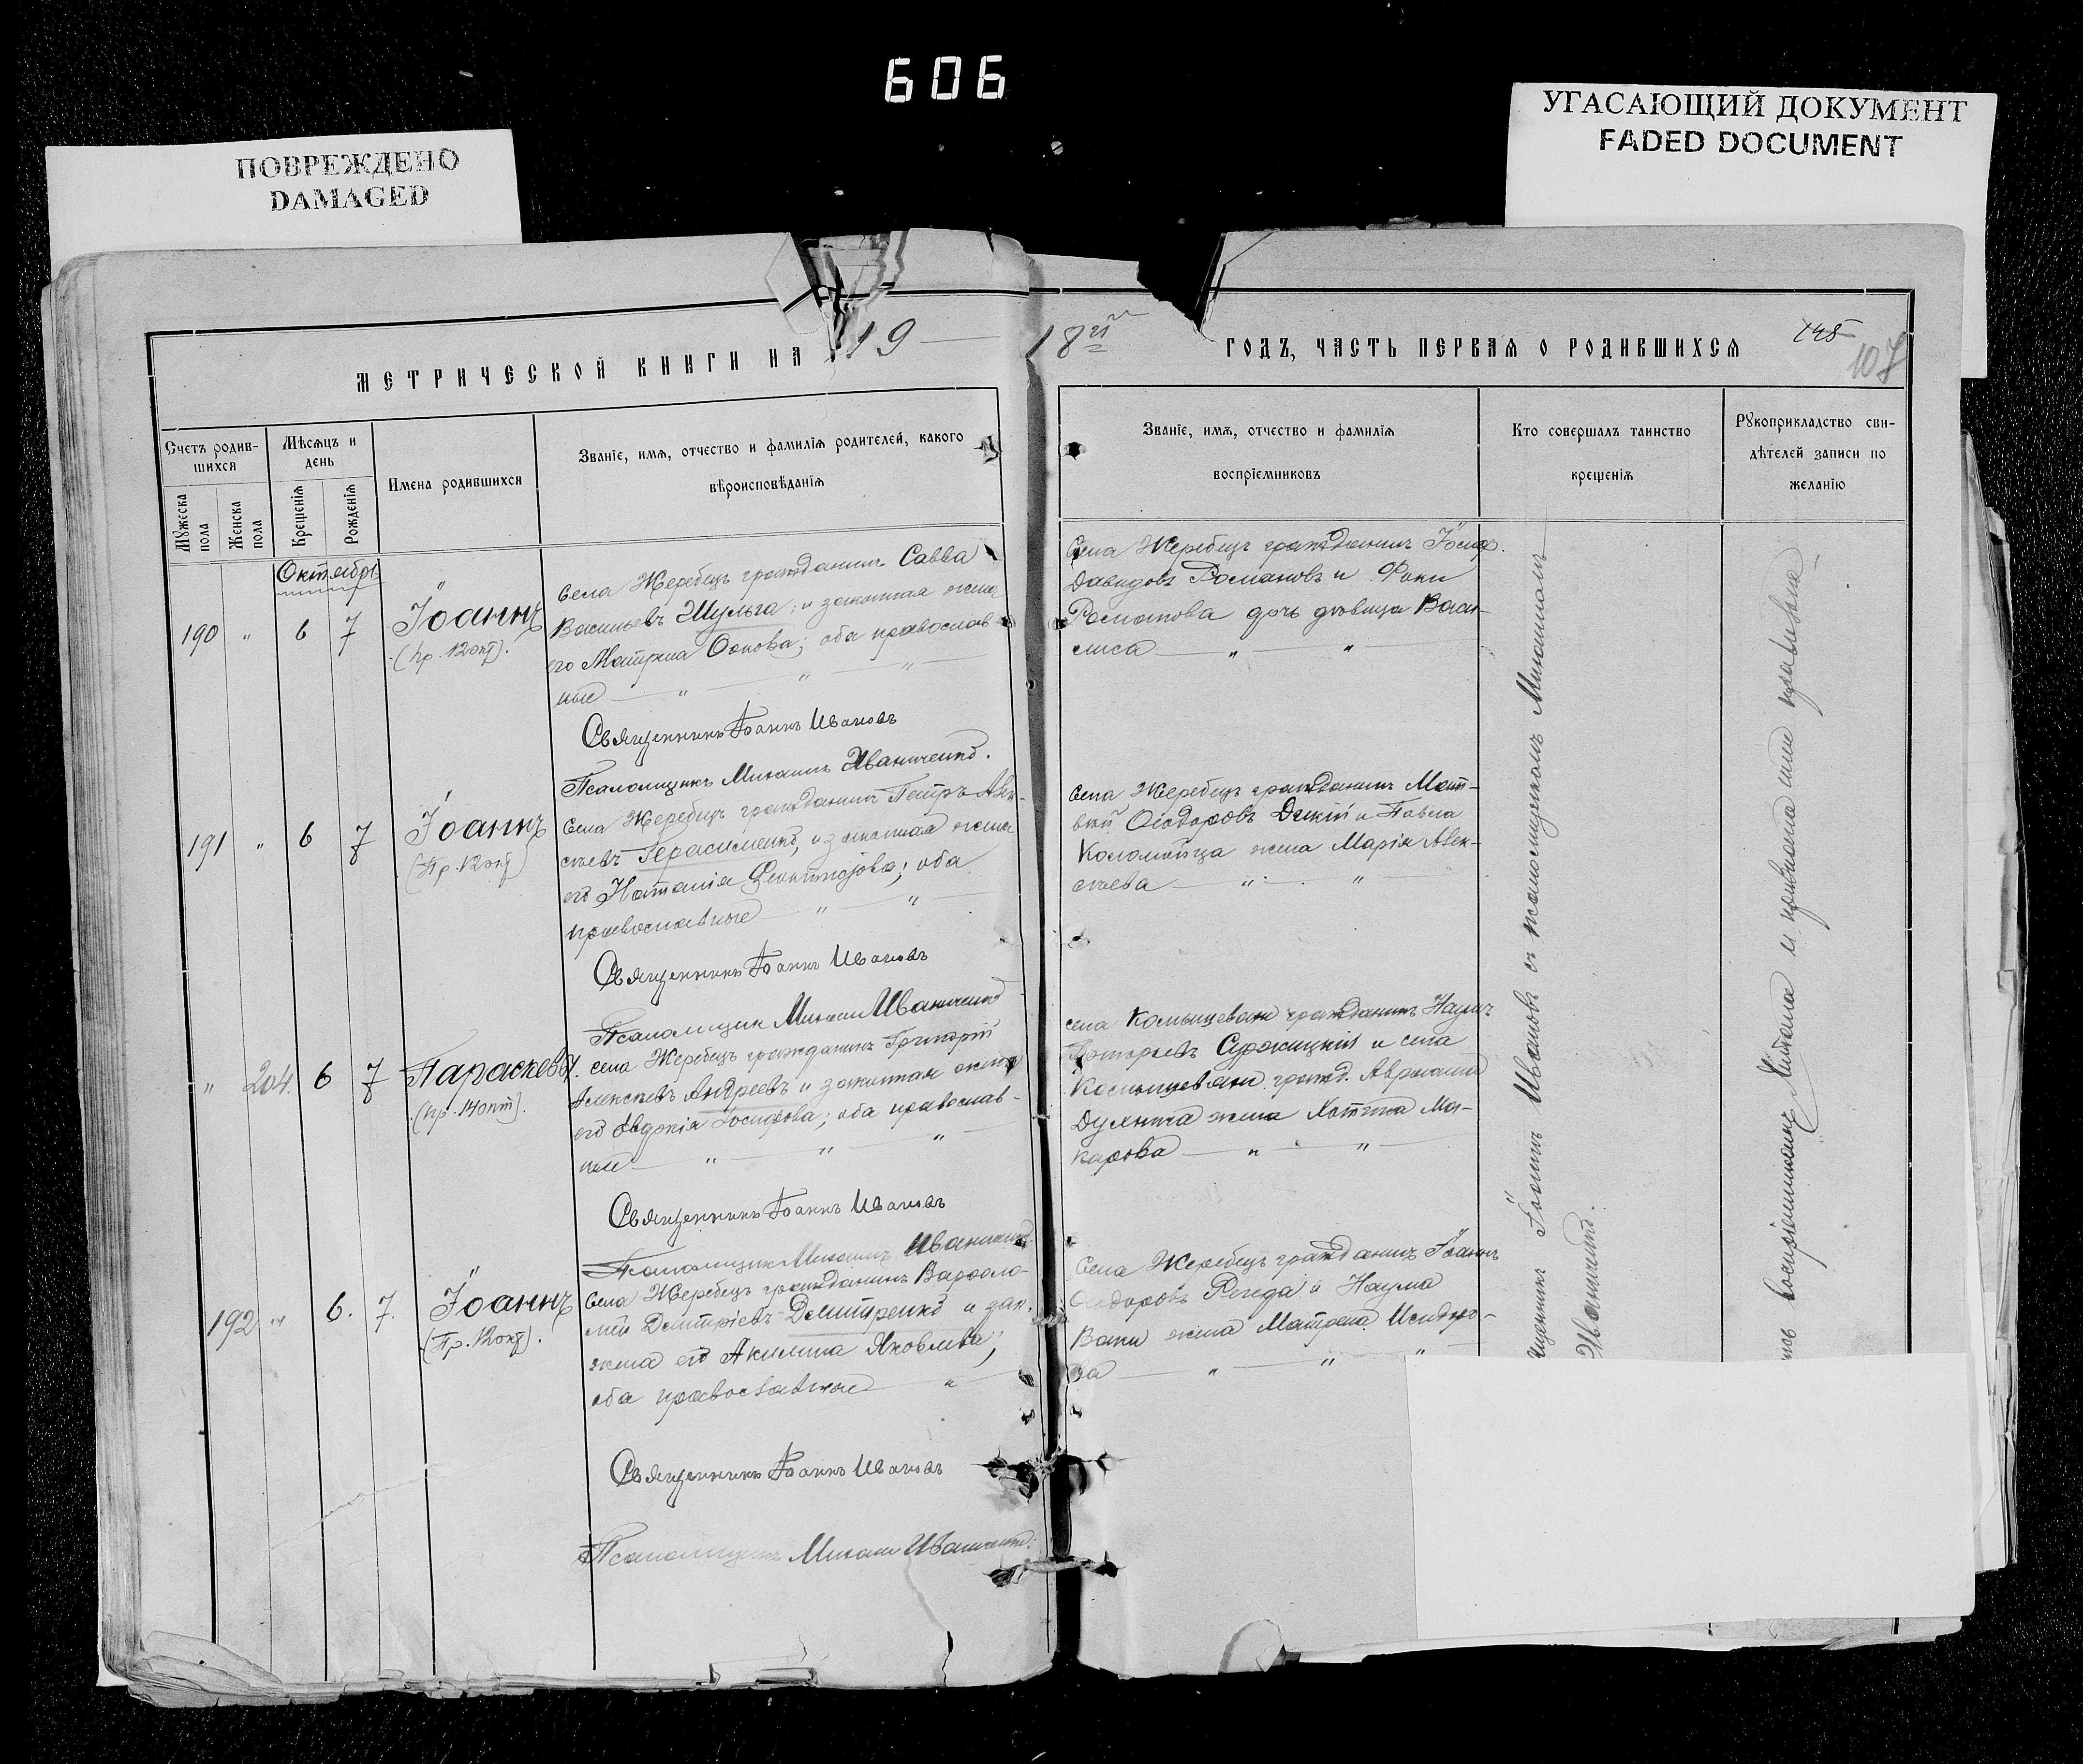 606
ПОВРЕЖДЕНО
DAMAGED
УГАСАЮЩИЙ ДОКУМЕНТ
FADED DOCUMENT
МЕТРИЧЕСКОЙ КНИГИ НА 19
18 й
ГОДЪ, ЧАСТЬ ПЕРВАЯ О РОДИВШИХСЯ
148
107
Счетъ родив-
шихся
Мужеска пола
Женска пола
Мѣсяцъ и
день
Крещенія
Рожденія
Имена родившихся
Званіе, имя, отчество и фамилія родителей, какого
вѣроисповѣданія
Званіе, имя, отчество и фамилія
воспріемниковъ
Кто совершалъ таинство
крещенія
Рукоприкладство сви-
дѣтелей записи по
желанію
Октябрь
190 " 6 7
Іоаннъ
(пр. 12 окт).
Села Жеребецъ гражданинъ Савва
Васильевъ Шульга; и законная жена
его Матрона; оба православ-
ные
Священникъ Іоаннъ Ивановъ
Псаломщикъ Михаилъ Иваниченко.
Села Жеребецъ гражданинъ Іосиф.
Давидовъ Романовъ и Фоки
Романова дочь дѣвица Васи-
лиса
191 " 6 7
Іоаннъ
(Пр. 12 окт)
Села Жеребецъ гражданинъ Петръ Алек-
сѣевъ Герасименко, и законная жена
его Наталія; оба
православные
Священникъ Іоаннъ Ивановъ
Псаломщикъ Михаилъ Иваниченко
Села Жеребецъ гражданинъ Мат-
вѣй Ѳеодоровъ Дикій и Павла
Коломойца жена Марія Алек-
сѣева
" 204. 6 7
Параскева.
(пр. 14 окт).
села Жеребецъ гражданинъ Григорій
Алексѣевъ Андреевъ и законная жена
его Евдокія Іосифова; оба православ-
ные
Священникъ Іоаннъ Ивановъ
Псаломщикъ Михаилъ Иваниченко
села Камышеваха гражданинъ Наумъ
Григорьевъ и села
Камышевахи гражд. Авраама
жена Ма-
карова
192 " 6. 7.
Іоаннъ
(Пр. 12 окт).
Села Жеребецъ гражданинъ Варѳоло-
мей Дмитріевъ Дмитренко и зак.
жена его Акилина Яковлева;
оба православные
Священникъ Іоаннъ Ивановъ
Псаломщикъ Михаилъ Иваниченко.
Села Жеребецъ гражданинъ Іоаннъ
Ѳеодоровъ Регеда и Наума
жена Матрона Исидоро-
ва
Іоаннъ Ивановъ съ псаломщикомъ Михаиломъ
Иваниченко.